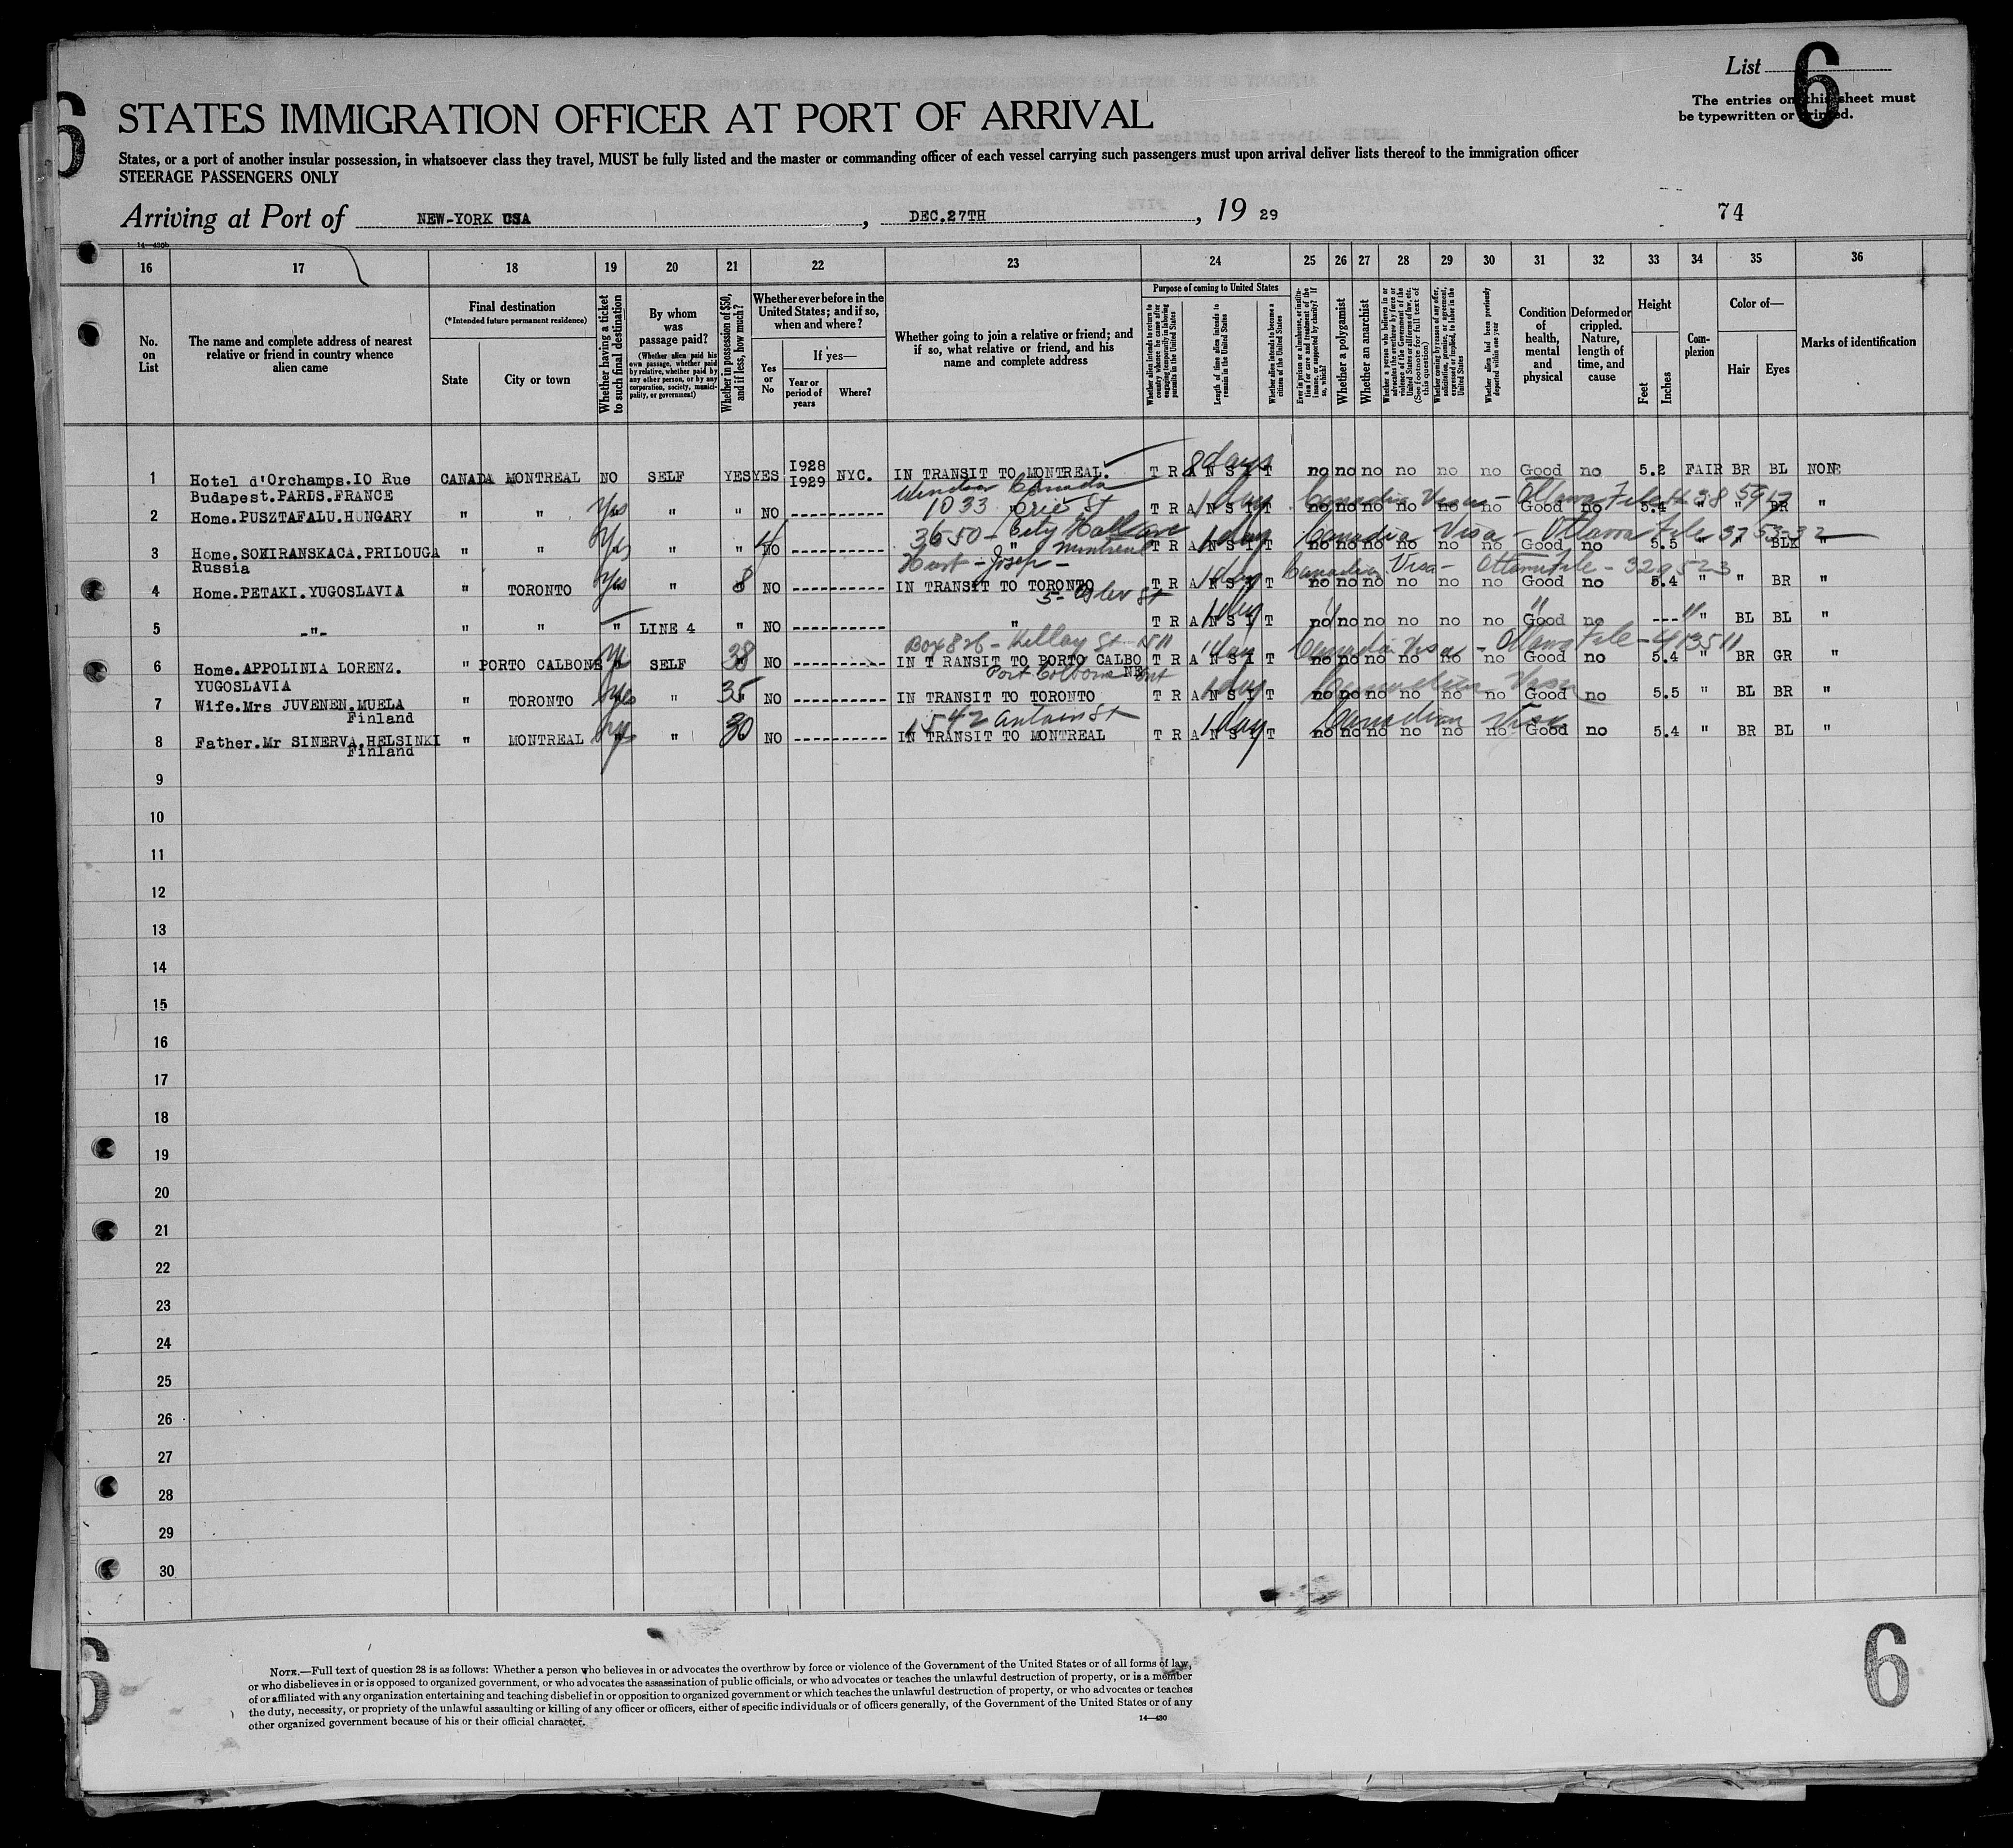 List 6
The entries on this sheet must
be typewritten or printed.
6
STATES IMMIGRATION OFFICER AT PORT OF ARRIVAL
States, or a port of another insular possession, in whatsoever class they travel, MUST be fully listed and the master or commanding officer of each vessel carrying such passengers must upon arrival deliver lists thereof to the immigration officer
STEERAGE PASSENGERS ONLY
Arriving at Port of NEW-YORK USA, DEC.27TH, 19 29
74
14—430b
16 17 18 19 20 21 22 23 24 25 26 27 28 29 30 31 32 33 34 35 36
No. on List
The name and complete address of nearest relative or friend in country whence alien came
Final destination
(*Intended future permanent residence)
State
City or town
Whether having a ticket to such final destination
By whom was passage paid?
(Whether alien paid his own passage, whether paid by relative, whether paid by any other person, or by any corporation, society, municipality, or government)
Whether in possession of $50, and if less, how much?
Whether ever before in the United States; and if so, when and where?
Yes or No
If yes—
Year or period of years
Where?
Whether going to join a relative or friend; and if so, what relative or friend, and his name and complete address
Purpose of coming to United States
Whether alien intends to return to country whence he came after engaging temporarily in laboring pursuits in the United States
Length of time alien intends to remain in the United States
Whether alien intends to become a citizen of the United States
Ever in prison or almshouse, or institution for care and treatment of the insane, or supported by charity? If so, which?
Whether a polygamist
Whether an anarchist
Whether a person who believes in or advocates the overthrow by force or violence of the Government of the United States or all forms of law, etc. (See footnote for full text of this question)
Whether coming by reason of any offer, solicitation, promise, or agreement, expressed or implied, to labor in the United States
Whether alien had been previously deported within one year
Condition of health, mental and physical
Deformed or crippled. Nature, length of time, and cause
Height
Feet
Inches
Complexion
Color of—
Hair
Eyes
Marks of identification
8 days
1 Hotel d'Orchamps.IO Rue CANADA MONTREAL NO SELF YES YES I928 I929 NYC. IN TRANSIT TO MONTREAL. T R A N S I T no no no no no no Good no 5.2 FAIR BR BL NONE
Budapest.PARIS.FRANCE
Windsor Canada
1033 Erie St 1 day Canadian Visa - Ottawa File
2 Home.PUSZTAFALU.HUNGARY " " Yes " " NO ---------- " T R A N S I T no no no no no no Good no 5.4 " " BR "
3650 - City Hall ave 1 day Canadian Visa - Ottawa File
3 Home.SOKIRANSKAGA.PRILOUGA " " Yes " " 4 NO ---------- " Montreal T R A N S I T no no no no no no Good no 5.5 " " BLK "
Russia
Josep - 1 day Canadian Visa - Ottawa File - 329523
4 Home.PETAKI.YUGOSLAVIA " TORONTO Yes " 8 NO ---------- IN TRANSIT TO TORONTO T R A N S I T no no no no no no Good no 5.4 " " BR "
5 -"- " " " LINE 4 " NO ---------- " T R A N S I T 1 day no no no no no no Good no --- " BL BL "
Box 826 - 1 day Canadian Visa - Ottawa File - 413511
6 Home.APPOLINIA LORENZ. " PORTO CALBONE SELF 38 NO ---------- IN T RANSIT TO PORTO CALBO T R A N S I T no no no no no no Good no 5.4 " BR GR "
NE
YUGOSLAVIA
Port Colborne Ont
1 day Canadian Visa
7 Wife.Mrs JUVENEN.MUELA " TORONTO Yes " 35 NO ---------- IN TRANSIT TO TORONTO T R A N S I T no no no no no no Good no 5.5 " BL BR "
Finland
1542 Antoin St 1 day Canadian Visa
8 Father.Mr SINERVA.HELSINKI " MONTREAL Yes " 30 NO ---------- IN TRANSIT TO MONTREAL T R A N S I T no no no no no no Good no 5.4 " BR BL "
Finland
9
10
11
12
13
14
15
16
17
18
19
20
21
22
23
24
25
26
27
28
29
30
NOTE.—Full text of question 28 is as follows: Whether a person who believes in or advocates the overthrow by force or violence of the Government of the United States or of all forms of law,
or who disbelieves in or is opposed to organized government, or who advocates the assassination of public officials, or who advocates or teaches the unlawful destruction of property, or is a member
of or affiliated with any organization entertaining and teaching disbelief in or opposition to organized government or which teaches the unlawful destruction of property, or who advocates or teaches
the duty, necessity, or propriety of the unlawful assaulting or killing of any officer or officers, either of specific individuals or of officers generally, of the Government of the United States or of any
other organized government because of his or their official character.
14—430
6
6